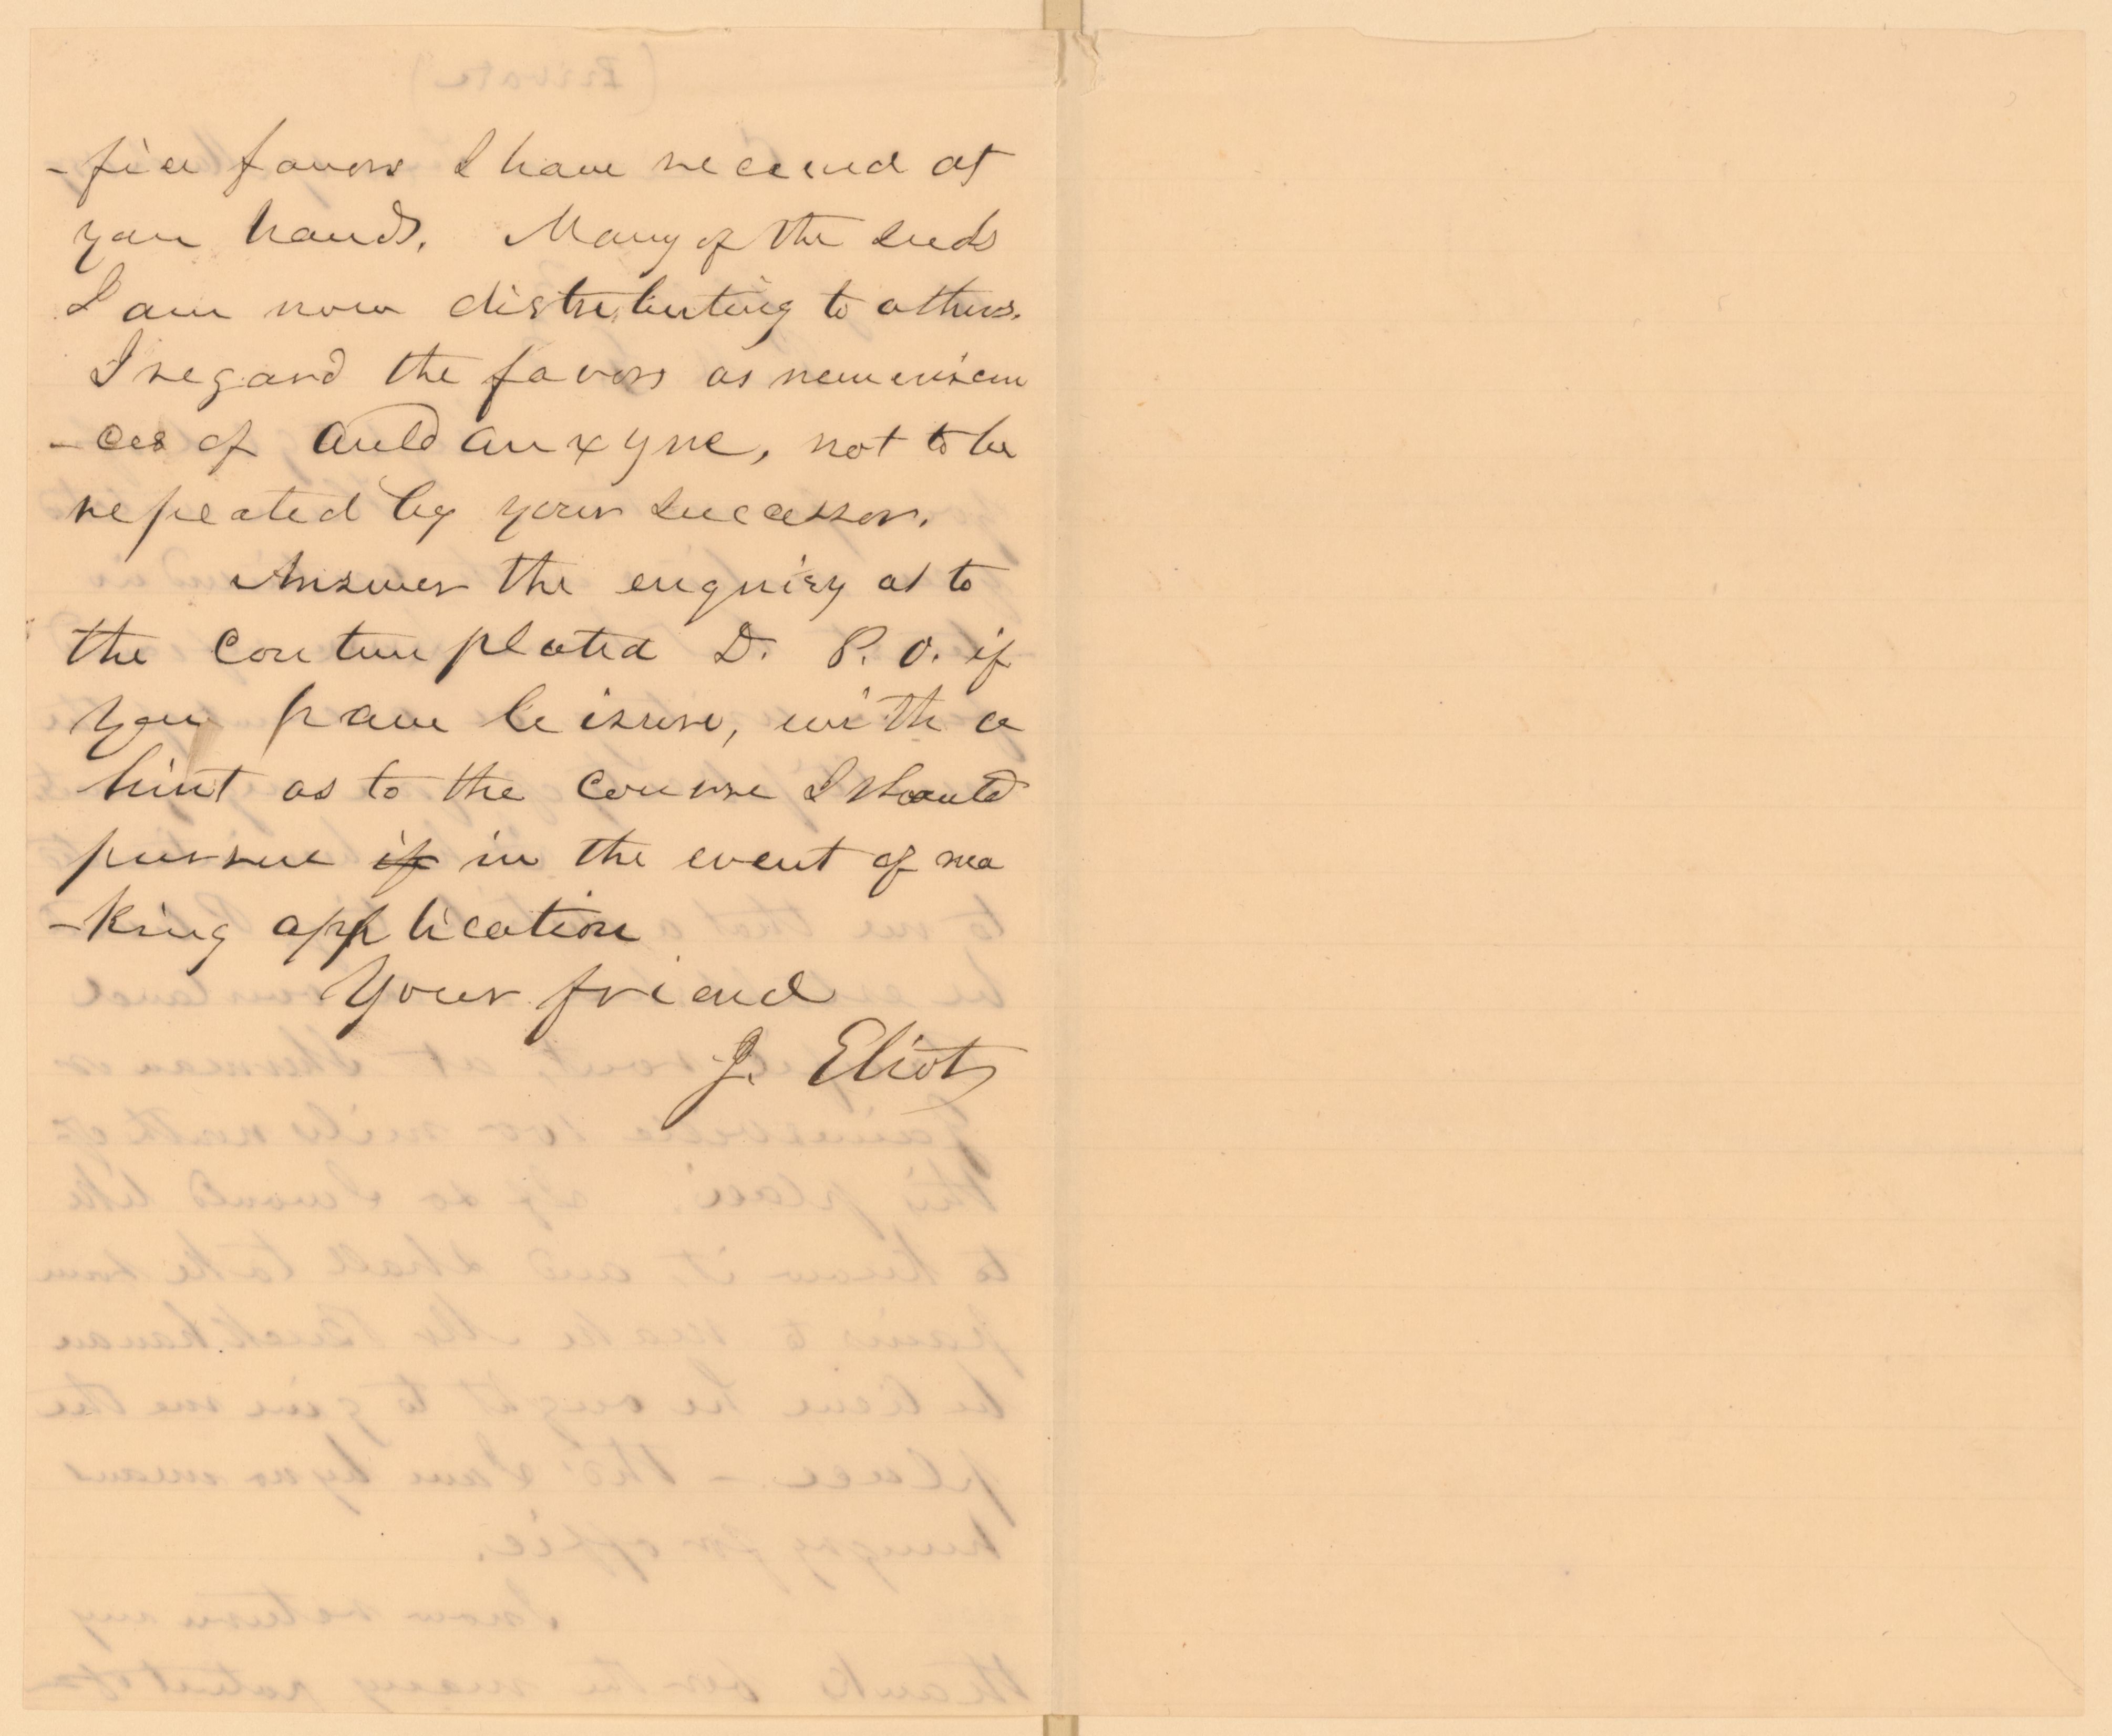 -fice favors I have received at
your hands. Many of the seeds
I am now distributing to others.
I regard the favors as reminiscen
-ces of auld an xyne, not to be
repeated by your successor.
Answer the enquiry as to
the contemplated D. P. O. if
you have leisure, with a
hint as to the course I should
pursue if in the event of ma
-king application
Your friend
J. Eliot